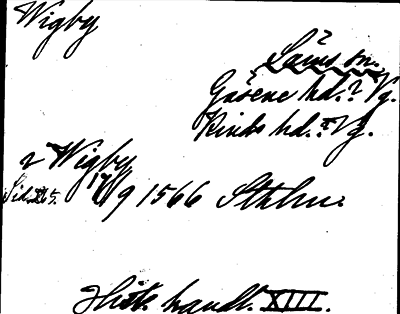 Wigby
Läns sn.
Gäsene hd.? Vg.
Kinds hd.? Vg.
2 Wigby
Sid. 25. 17/9 1566 Sthlm.
Hist. handl. XIII.